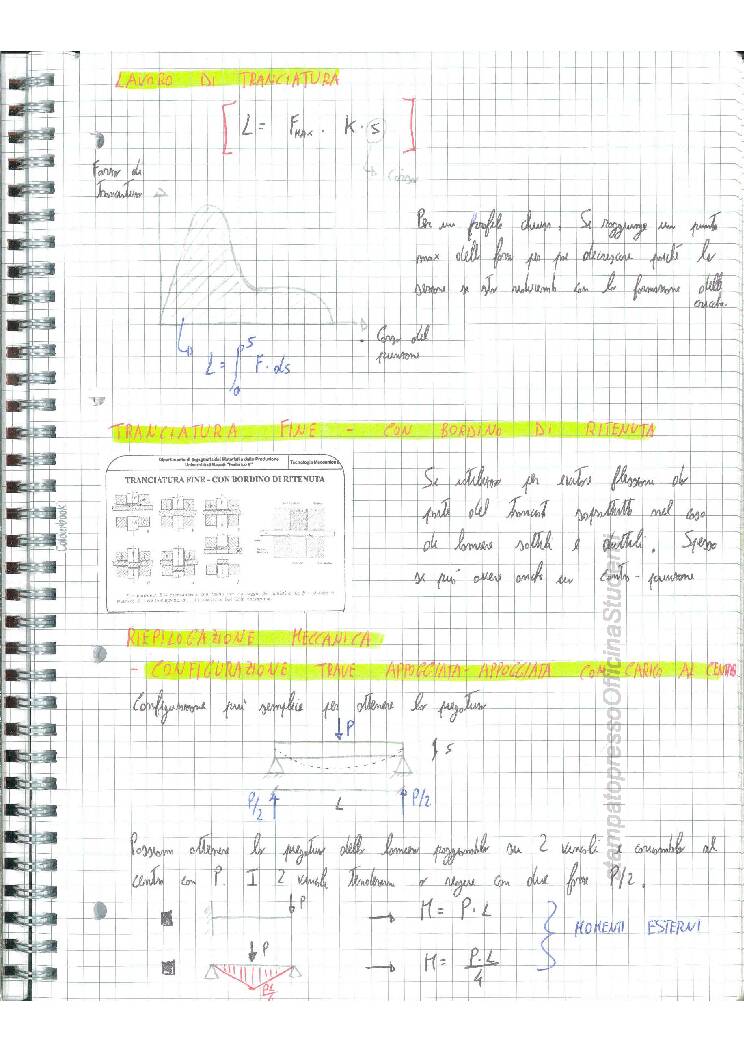 LAVORO DI TRANCIATURA
L = F MAX . K . s
Corsa
Forza di
Tranciatura
Per un profilo chiuso. Se raggiunge un punto
max della forza per poi decrescere perché la
sezione si sta riducendo con la formazione delle
cricche.
Corsa del
punzone
L = ∫ F . ds
s
0
TRANCIATURA FINE - CON BORDINO DI RITENUTA
Dipartimento di Ingegneria dei Materiali e della Produzione
Università di Napoli "Federico II"
Tecnologia Meccanica
TRANCIATURA FINE - CON BORDINO DI RITENUTA
Si utilizza per evitare flessioni da
parte del tranciato soprattutto nel caso
di lamiere sottili e duttili. Spesso
si può avere anche un contro-punzone
Colourbook
RIEPILOGAZIONE MECCANICA
- CONFIGURAZIONE TRAVE APPOGGIATA-APPOGGIATA CON CARICO AL CENTRO
Configurazione più semplice per ottenere la piegatura
P
s
P/2 L P/2
Possiamo ottenere la piegatura della lamiera poggiandola su 2 vincoli e caricandola al
centro con P. I 2 vincoli tenderanno a reagire con due forze P/2.
P → M = P . L
MOMENTI ESTERNI
P → M = P . L / 4
tampatopressoOfficinaStudenti